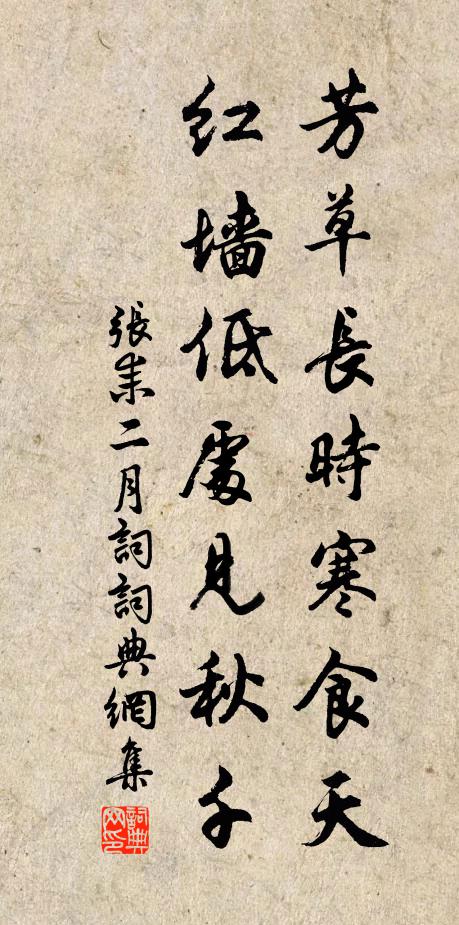 芳草長時寒食天
紅墻低處見秋千
張耒二月詞詞典網集
詞典网印